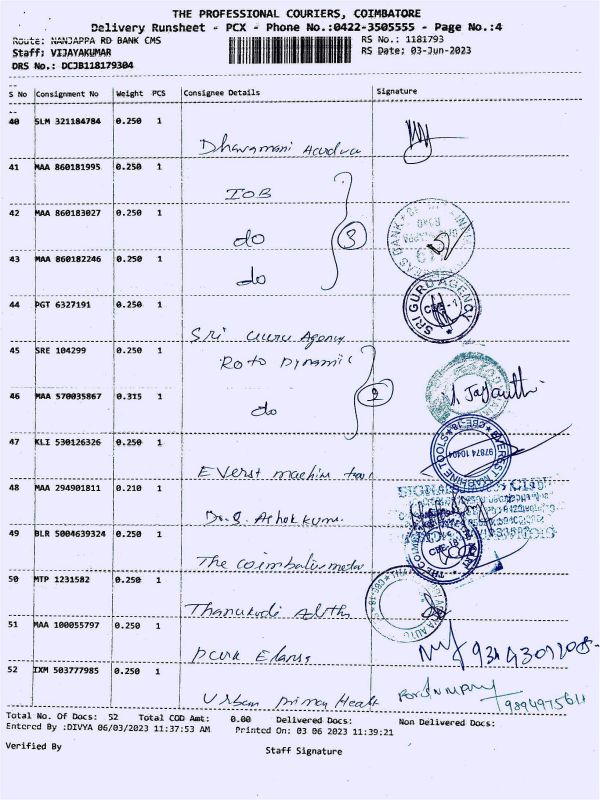 THE PROFESSIONAL COURIERS, COIMBATORE
Delivery Runsheet - PCX - Phone No.:0422-3505555 - Page No.:4
Route: NANJAPPA RD BANK CMS
RS No.: 1181793
Staff: VIJAYAKUMAR
RS Date: 03-Jun-2023
DRS No.: DCJB118179304
S No Consignment No Weight PCS Consignee Details Signature
40 SLM 321184784 0.250 1
Dharamani
41 MAA 860181995 0.250 1
IOB
42 MAA 860183027 0.250 1
do 3
43 MAA 860182246 0.250 1
do
44 PGT 6327191 0.250 1
SRI GURU AGENCY
CBE-1
Sri Guru Agency
45 SRE 104299 0.250 1
Roto Dynamic
46 MAA 570035867 0.315 1
do 2
Jayanthi
47 KLI 530126326 0.250 1
EVEREST MACHINE TOOLS
CBE-18
97874 10404
Everst machin
48 MAA 294901811 0.210 1
Dr. S. Ashok kum.
49 BLR 5004639324 0.250 1
CBE-18
The
50 MTP 1231582 0.250 1
CBE-18
51 MAA 100055797 0.250 1
52 IXM 503777985 0.250 1
Urban primary Healt
9894975611
Total No. Of Docs: 52 Total COD Amt: 0.00 Delivered Docs: Non Delivered Docs:
Entered By :DIVYA 06/03/2023 11:37:53 AM Printed On: 03 06 2023 11:39:21
Verified By Staff Signature